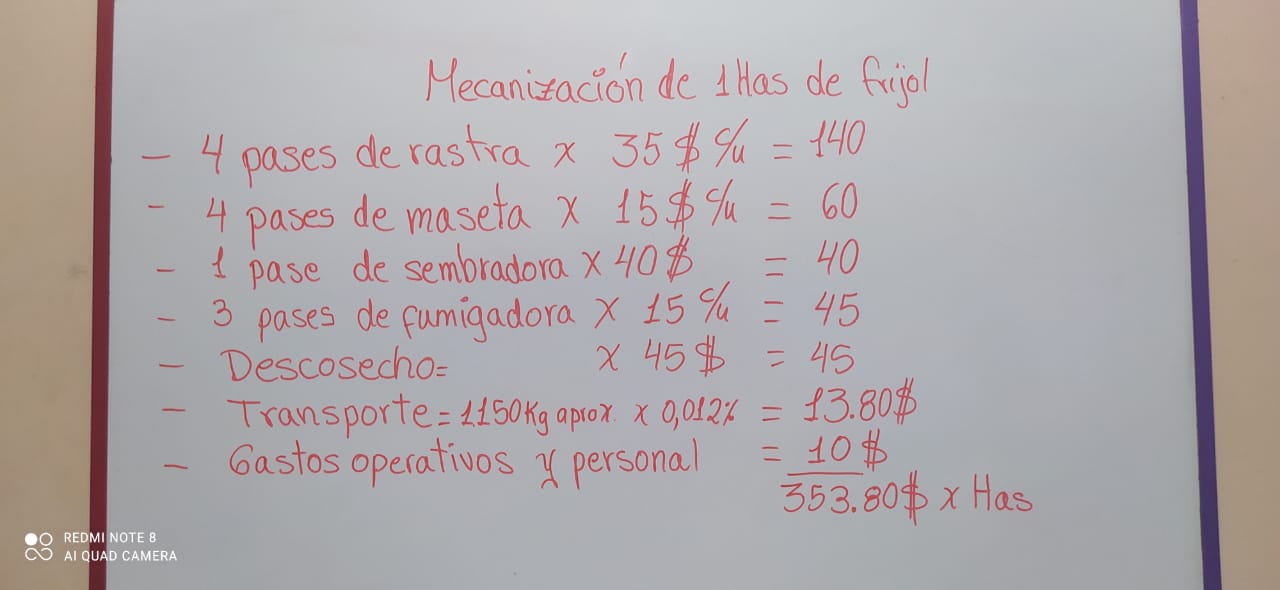 Mecanización de 1 Has de frijol
- 4 pases de rastra x 35$ c/u = 140
- 4 pases de maseta x 15$ c/u = 60
- 1 pase de sembradora x 40$ = 40
- 3 pases de fumigadora x 15 c/u = 45
- Descosecho= x 45$ = 45
- Transporte = 1150Kg aprox. x 0,012% = 13.80$
- Gastos operativos y personal = 10$
353.80$ x Has
REDMI NOTE 8
AI QUAD CAMERA